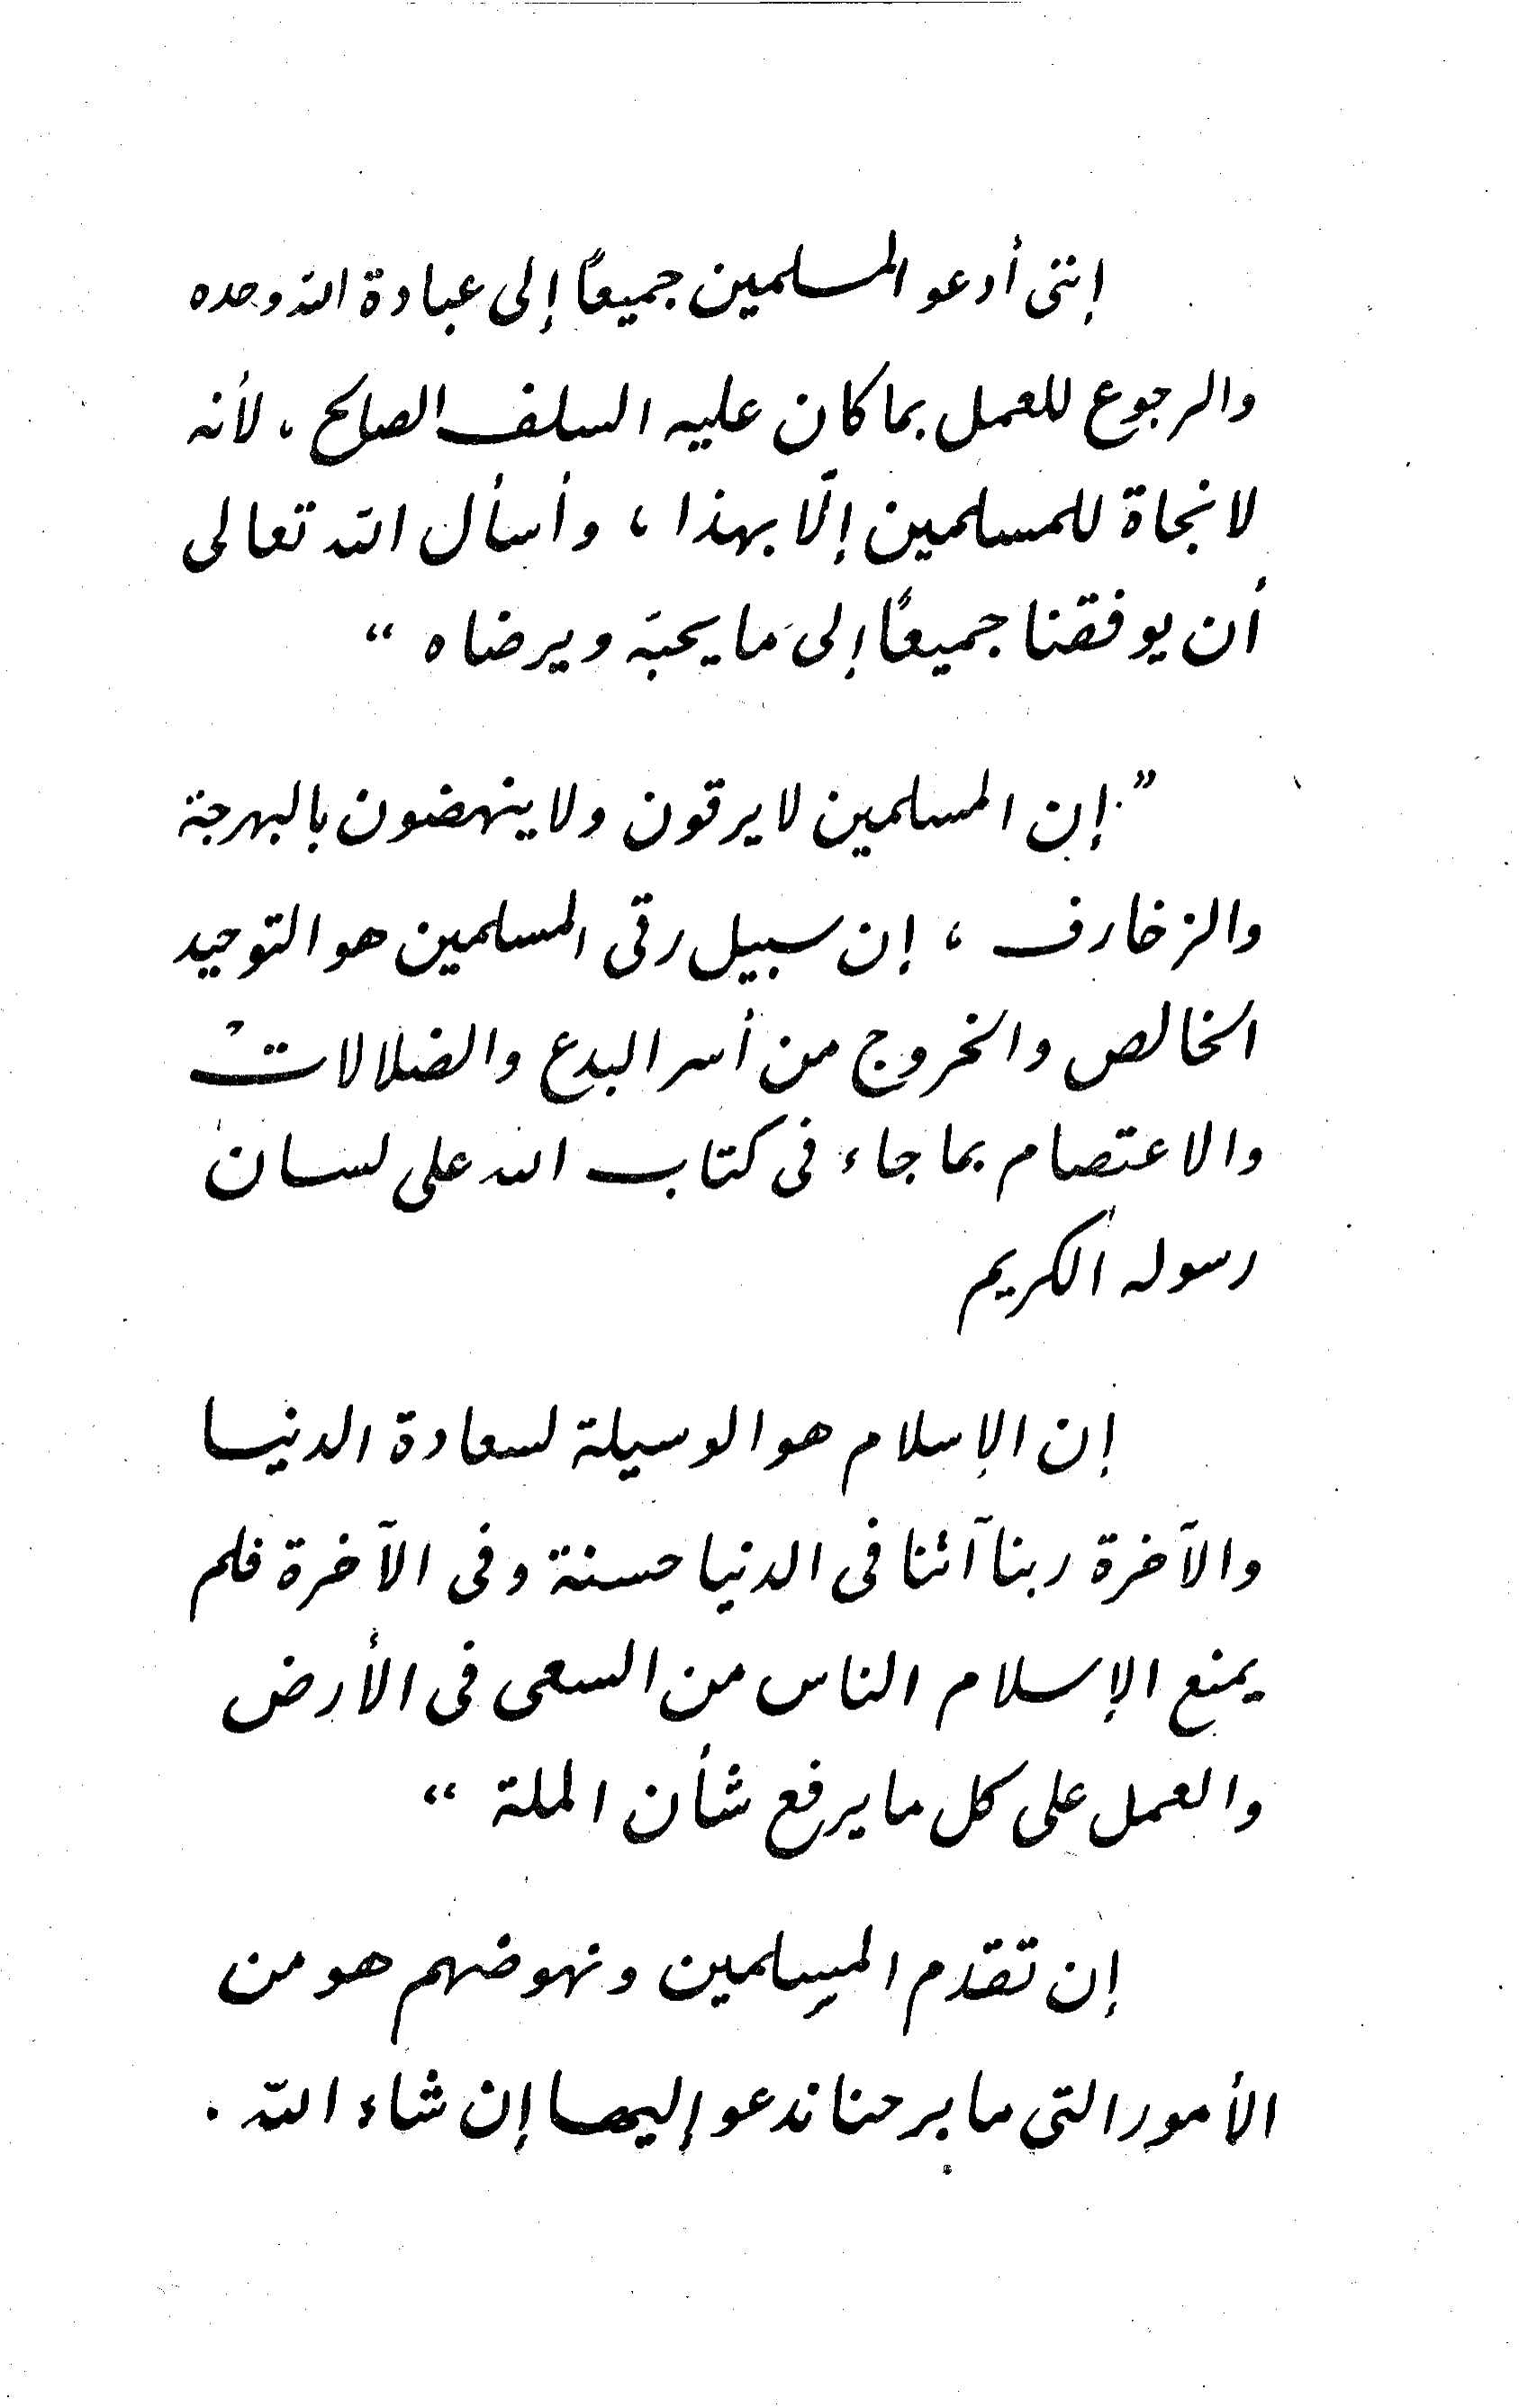 إننى أدعو المسلمين جميعًا إلى عبادة الله وحده
والرجوع للعمل بما كان عليه السلف الصالح ، لأنه
لا نجاة للمسلمين إلّا بهذا ، وأسأل الله تعالى
أن يوفقنا جميعًا إلى ما يحبّه ويرضاه “
” إن المسلمين لا يرقون ولا ينهضون بالبهرجة
والزخارف ، إن سبيل رقى المسلمين هو التوحيد
الخالص والخروج من أسر البدع والضلالات
والاعتصام بما جاء فى كتاب الله على لسان
رسوله الكريم
إن الإسلام هو الوسيلة لسعادة الدنيا
والآخرة ربنا آتنا فى الدنيا حسنة وفى الآخرة فلم
يمنع الإسلام الناس من السعى فى الأرض
والعمل على كل ما يرفع شأن الملة “
إن تقدم المسلمين ونهوضهم هو من
الأمور التى ما برحنا ندعو إليها إن شاء الله .